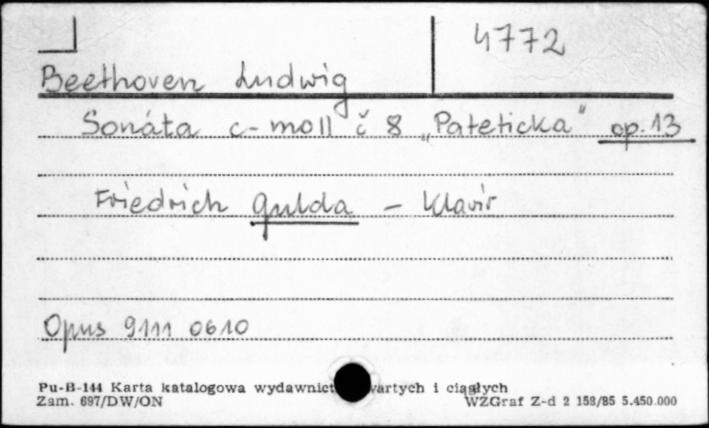 4772
Beethoven Ludwig
Sonáta c-moll č 8 „Patetická" op. 13
Friedrich Gulda - klavír
Opus 9111 0610
Pu-B-144 Karta katalogowa wydawnict wartych i ciągłych
Zam. 697/DW/ON WZGraf Z-d 2 158/85 5.450.000